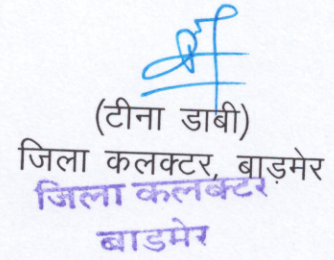 (टीना डाबी)
जिला कलक्टर, बाड़मेर
जिला कलक्टर
बाडमेर